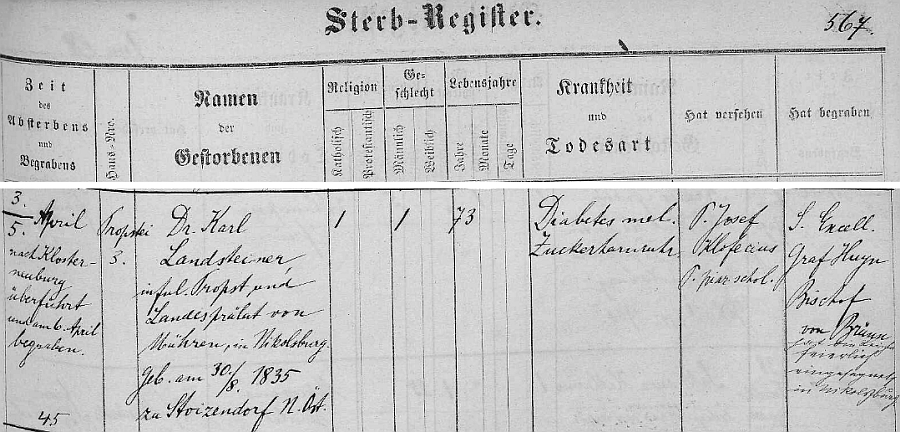 Sterb-Register.
567.
Zeit
des
Absterbens
und
Begrabens
Haus-Nro.
Namen
der
Gestorbenen
Religion
Katholisch
Protestantisch
Ge-
schlecht
Männlich
Weiblich
Lebensjahre
Jahre
Monate
Tage
Krankheit
und
Todesart
Hat versehen
Hat begraben
3.
5. April
nach Kloster-
neuburg
überführt
und am 6. April
begraben.
45
Propstei
3.
Dr. Karl
Landsteiner
inful. Propst und
Landesprälat von
Mähren, in Nikolsburg.
geb. am 30/8. 1835
zu Stoizendorf N. Öst.
1
1
73
Diabetes mel.
Zuckerharnruhr
P. Josef
Klofecius
P. piar. schol.
S. Excell.
Graf Huyn
Bischof
von Brünn
hat die Leiche
feierlich
eingesegnet
in Nikolsburg